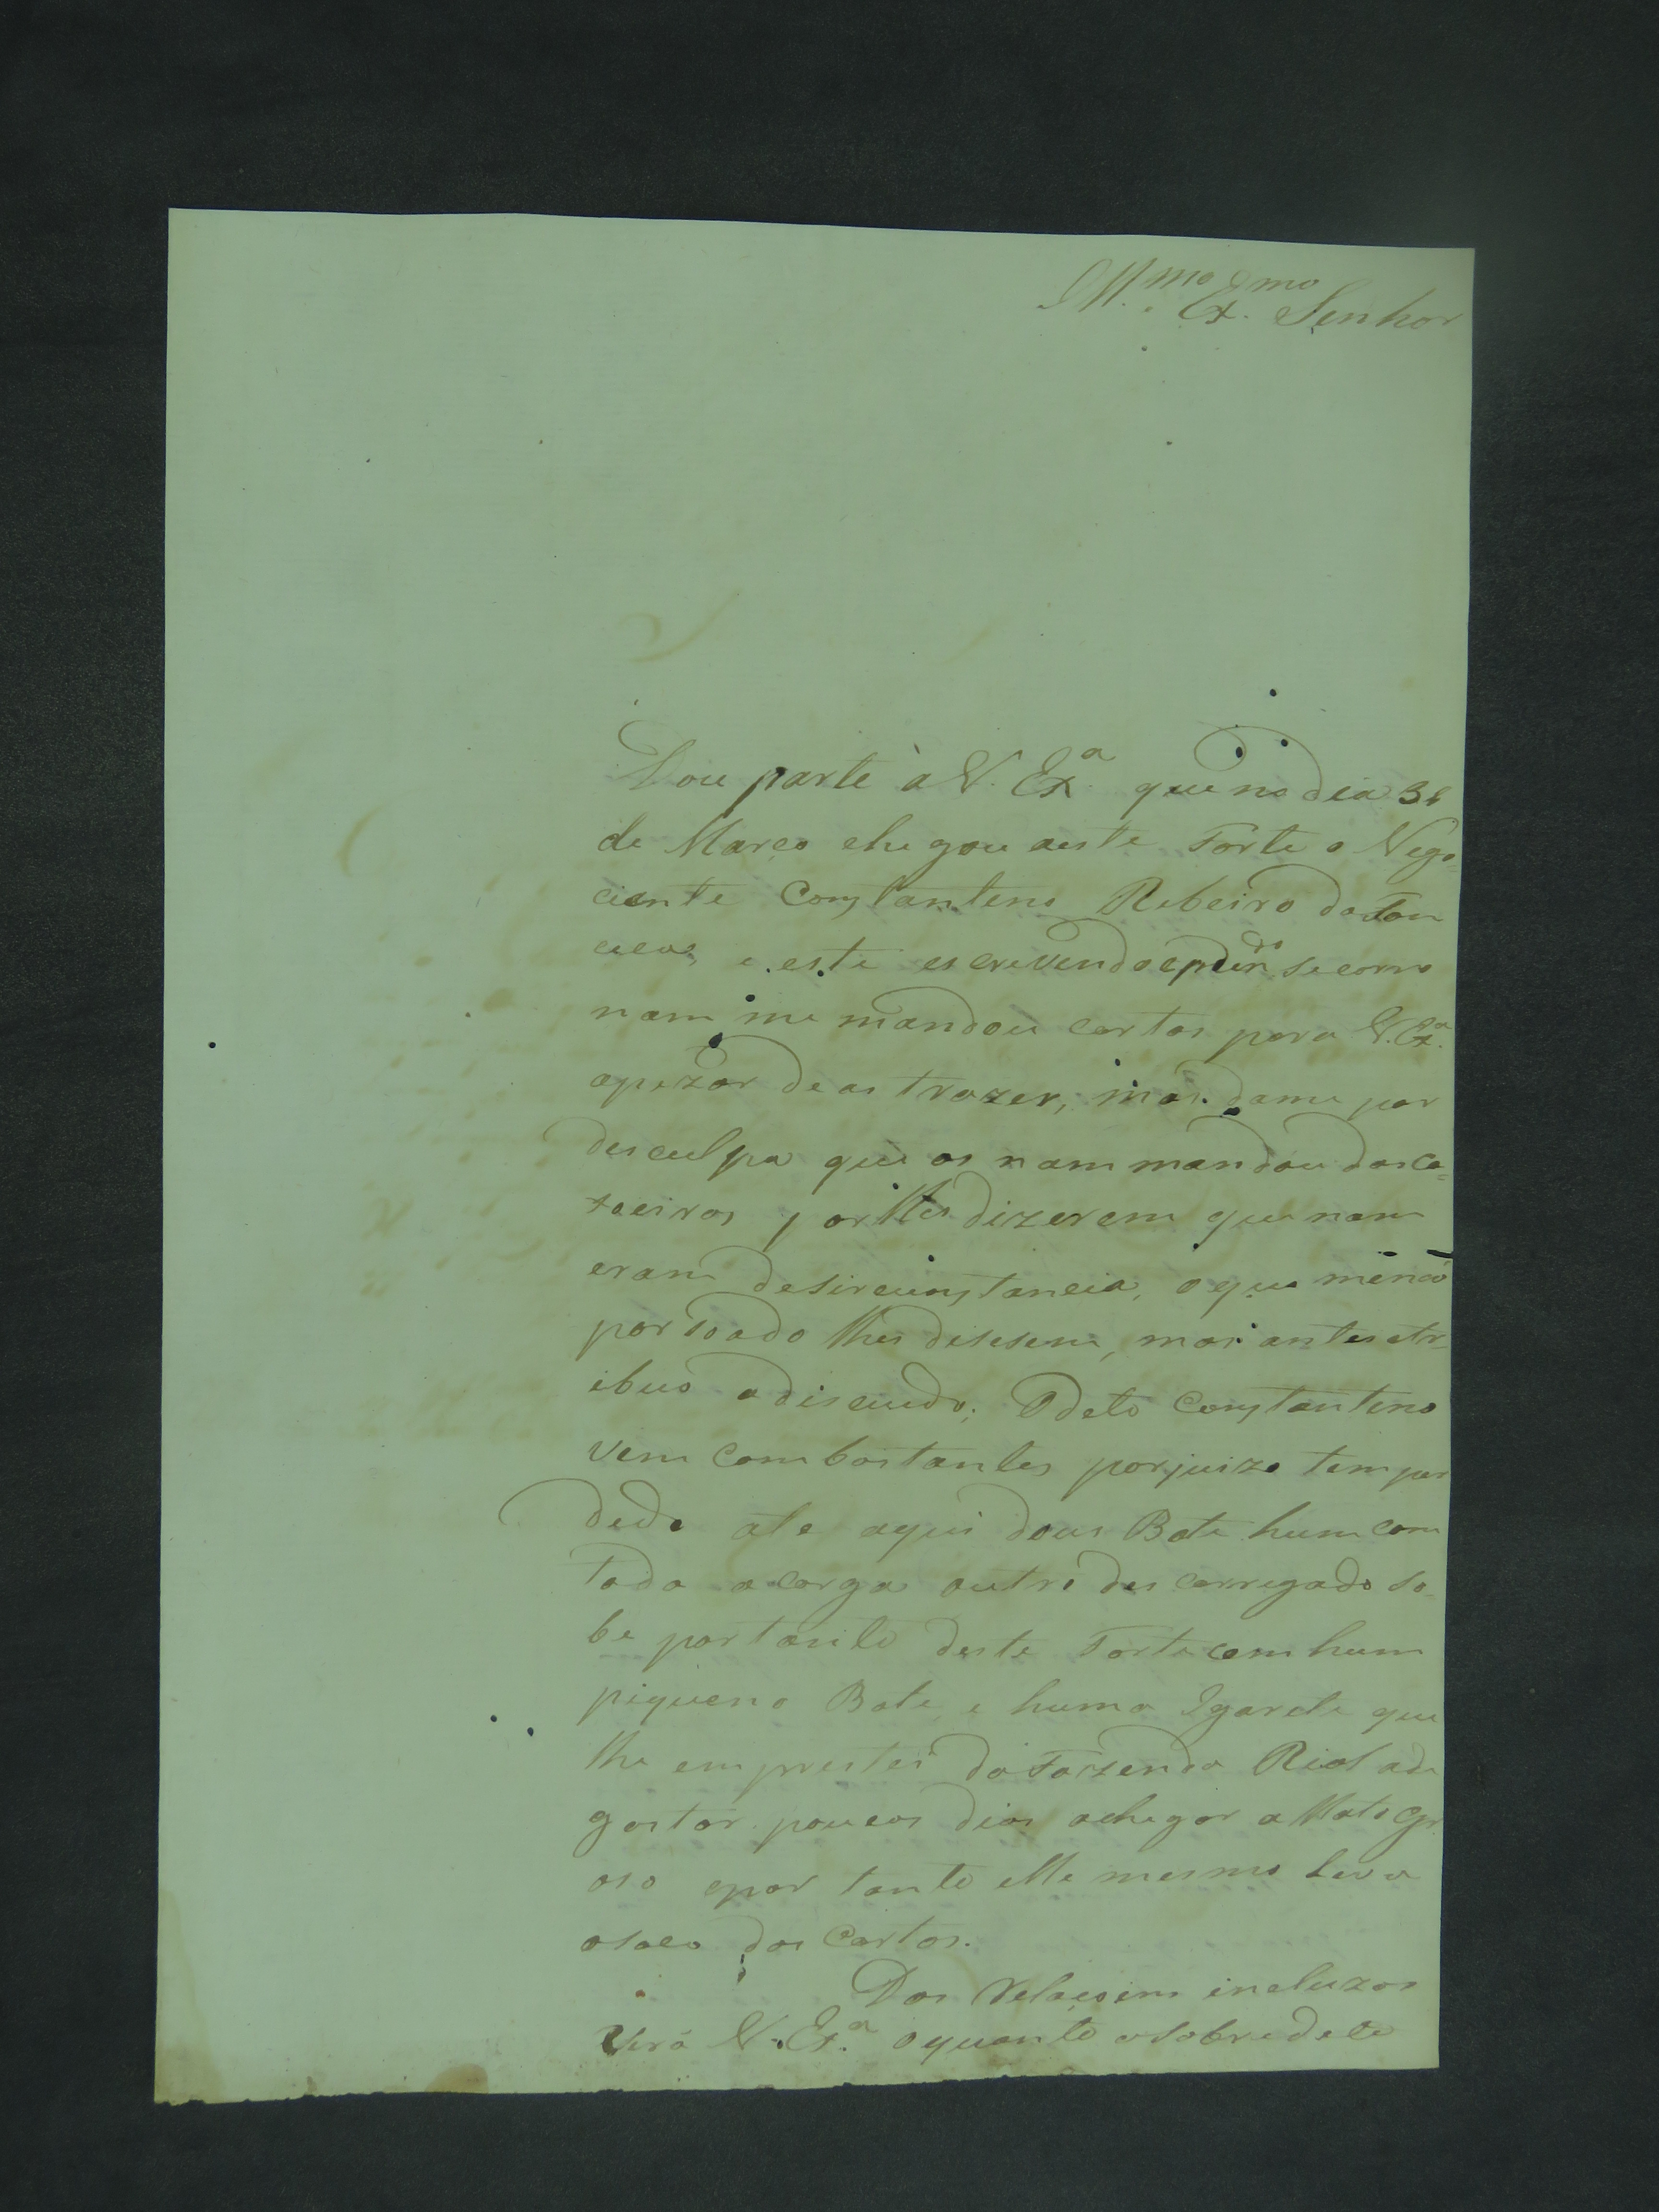 Ill.mo Ex.mo Senhor
Dou parte à V. Ex.a que no dia 31
de Março chegou aeste Forte o Nego-
ciente Constanteno Ribeiro da Fon
ceca, e este escrevendo se como
nam me mandou cartas para V. Ex.a
apezar de as trazer, mas dame por
desculpa que as nam mandou das Ca-
xoeiras, por lhes dizerem que nam
eram desircunstancia, o que menão
persoado lhes disesem, mas antes atr-
ibuo adiscuido; Odeto Constanteno
vem com bastantes porjuizo tem per
dedo ate aqui dous Bote hum com
toda acarga outro descarregado so-
be portanto deste Forte com hum
piqueno Bote, e huma Igarete que
lhe emprestei da Fazenda Rial ade
gastar poucos dias achegar a Mato Gr
oso epor tanto elle mesmo leva
osaco das Cartas.
Das Relaçoins incluzas
Verá V. Ex.a oquanto osobredeto